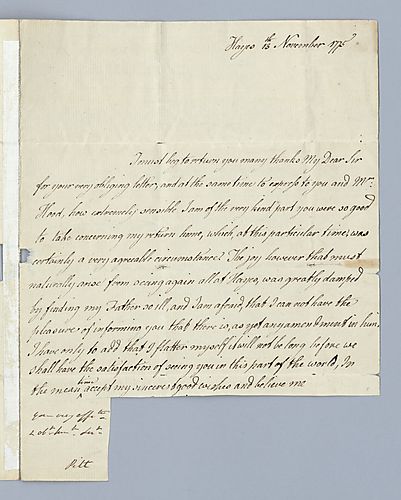 Hayes 13th November 1775
I must beg to return you many thanks My Dear Sir
for your very obliging letter, and at the same time to express to you and Mrs.
Hood, how extremely sensible I am of the very kind part you were so good
to take concerning my return home, which, at this particular time, was
certainly a very agreeable circumstance. The joy however that must
naturally arise from seeing again all at Hayes, was greatly damped
by finding my Father so ill, and I am afraid, that I can not have the
pleasure of informing you that there is, as yet any amendment in him.
I have only to add that I flatter myself it will not be long before we
shall have the satisfaction of seeing you in this part of the world, In
the mean time accept my sincerest good wishes and believe me
your very affte
& obt humle Sert
Pitt